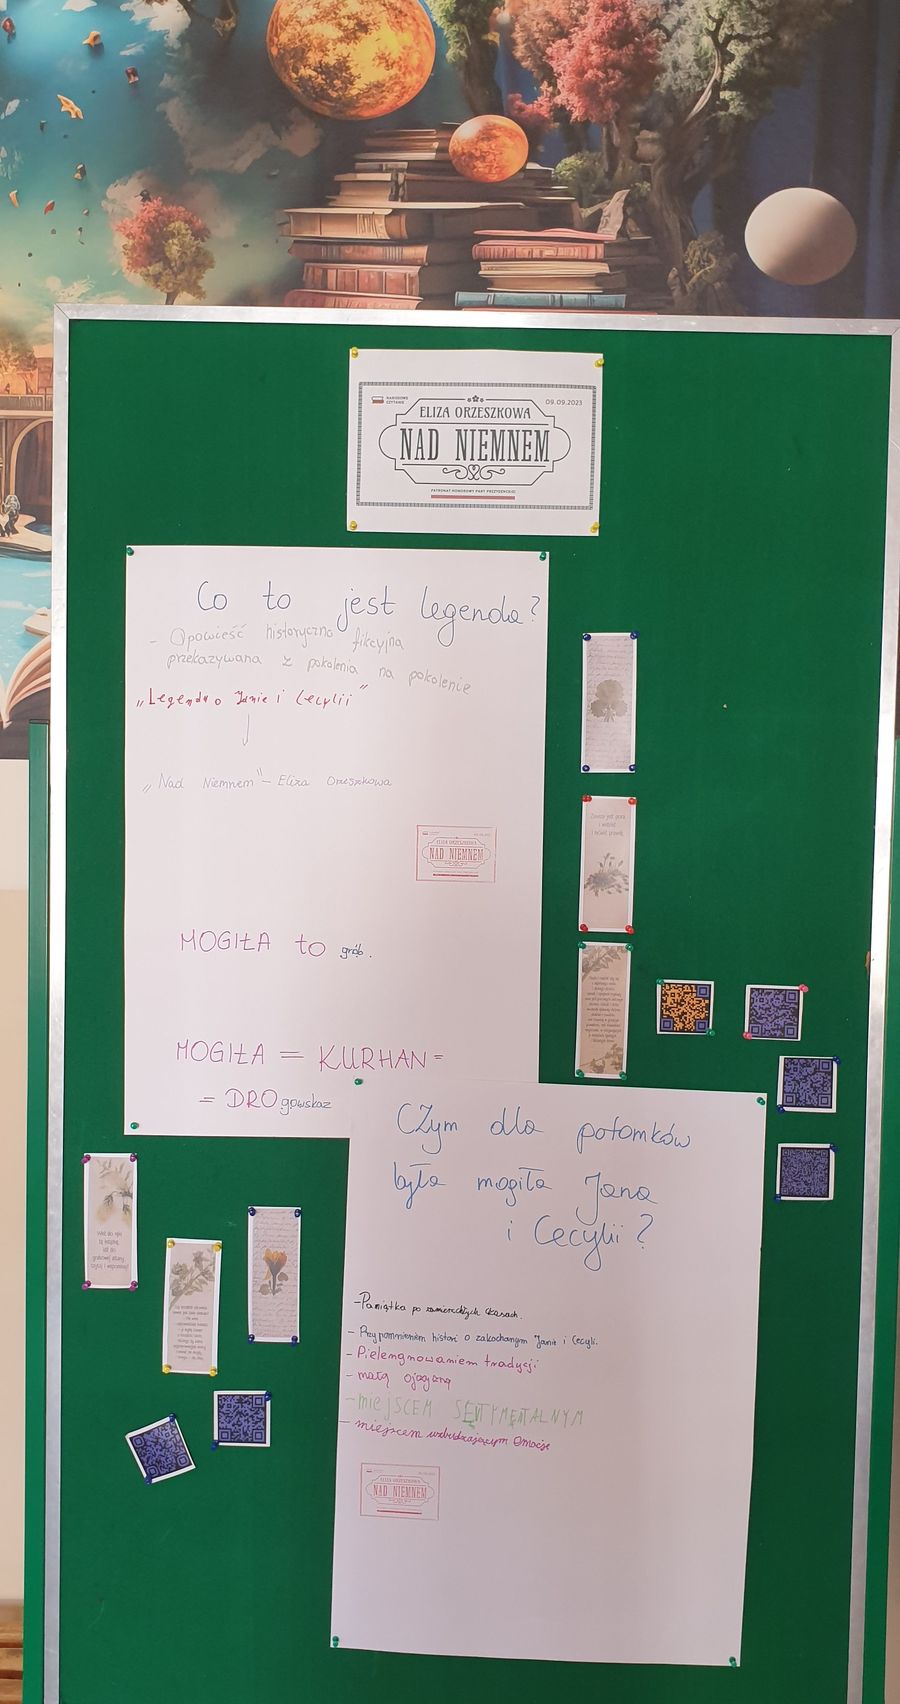 NARODOWE
CZYTANIE
09.09.2023
ELIZA ORZESZKOWA
NAD NIEMNEM
PATRONAT HONOROWY PARY PREZYDENCKIEJ
Co to jest legenda?
- Opowieść historyczno fikcyjna
przekazywana z pokolenia na pokolenie
„Legenda o Janie i Cecylii”
„Nad Niemnem” - Eliza Orzeszkowa
ELIZA ORZESZKOWA
NAD NIEMNEM
MOGIŁA to grób.
MOGIŁA = KURHAN =
= DROgowskaz
Zawsze jest góra
Czym dla potomków
była mogiła Jana
i Cecylii?
- Pamiątka po zamierzchłych czasach.
- Przypomnieniem histori o zakochanym Janie i Cecyli.
- Pielengnowaniem tradycji
- małą ojczyzną
- miejscem SENTYMENTALNYM
- miejscem wzbudzającym emocje
ELIZA ORZESZKOWA
NAD NIEMNEM